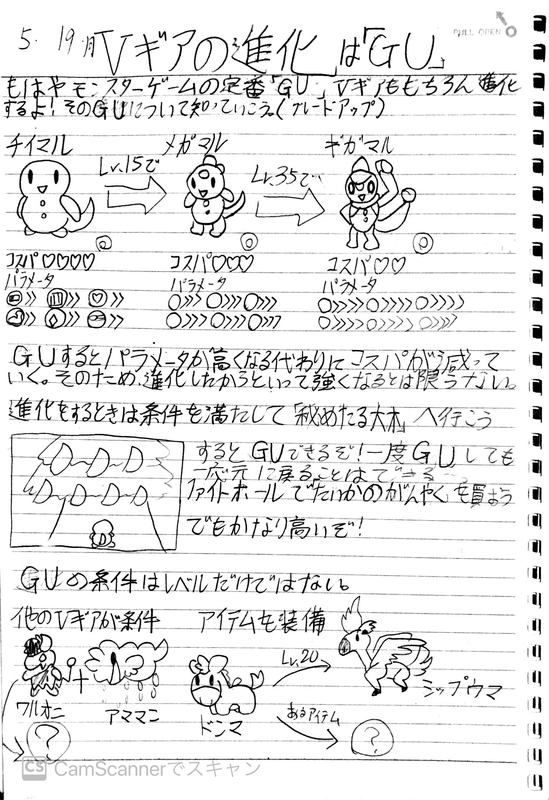 5. 19.月 Vギアの進化は「GU」
PULL OPEN
もはやモンスターゲームの定番「GU」、Vギアももちろん進化
するよ!そのGUについて知っていこう。(グレードアップ)
チイマル メガマル ギガマル
Lv.15で Lv.35で
コスパ♡♡♡♡ コスパ♡♡♡ コスパ♡♡
パラメータ パラメータ パラメータ
GUするとパラメータが高くなる代わりにコスパが減って
いく。そのため、進化したからといって強くなるとは限らない。
進化をするときは条件を満たして「秘めたる大木」へ行こう
するとGUできるぞ!一度GUしても
一応元に戻ることはできる
ファイトホールでたいかのがんやくを買おう
でもかなり高いぞ!
GUの条件はレベルだけではない。
他のVギアが条件 アイテムを装備
Lv.20
ワルオニ + アママニ ドンマ シップウマ
あるアイテム
? ?
CS CamScannerでスキャン